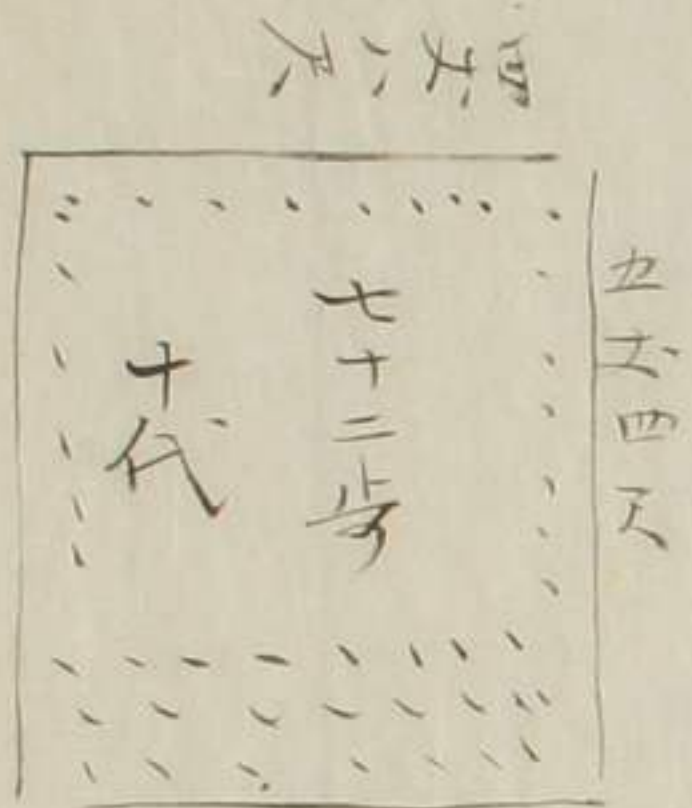 四丈八尺
五丈四尺
七十二歩
十代